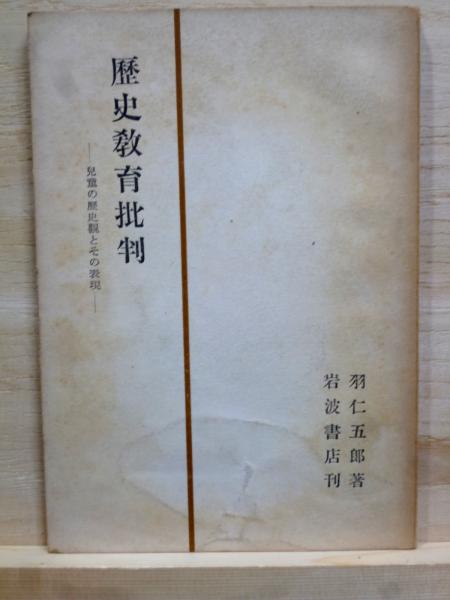 歷史敎育批判
―兒童の歷史觀とその表現―
羽仁五郎著
岩波書店刊